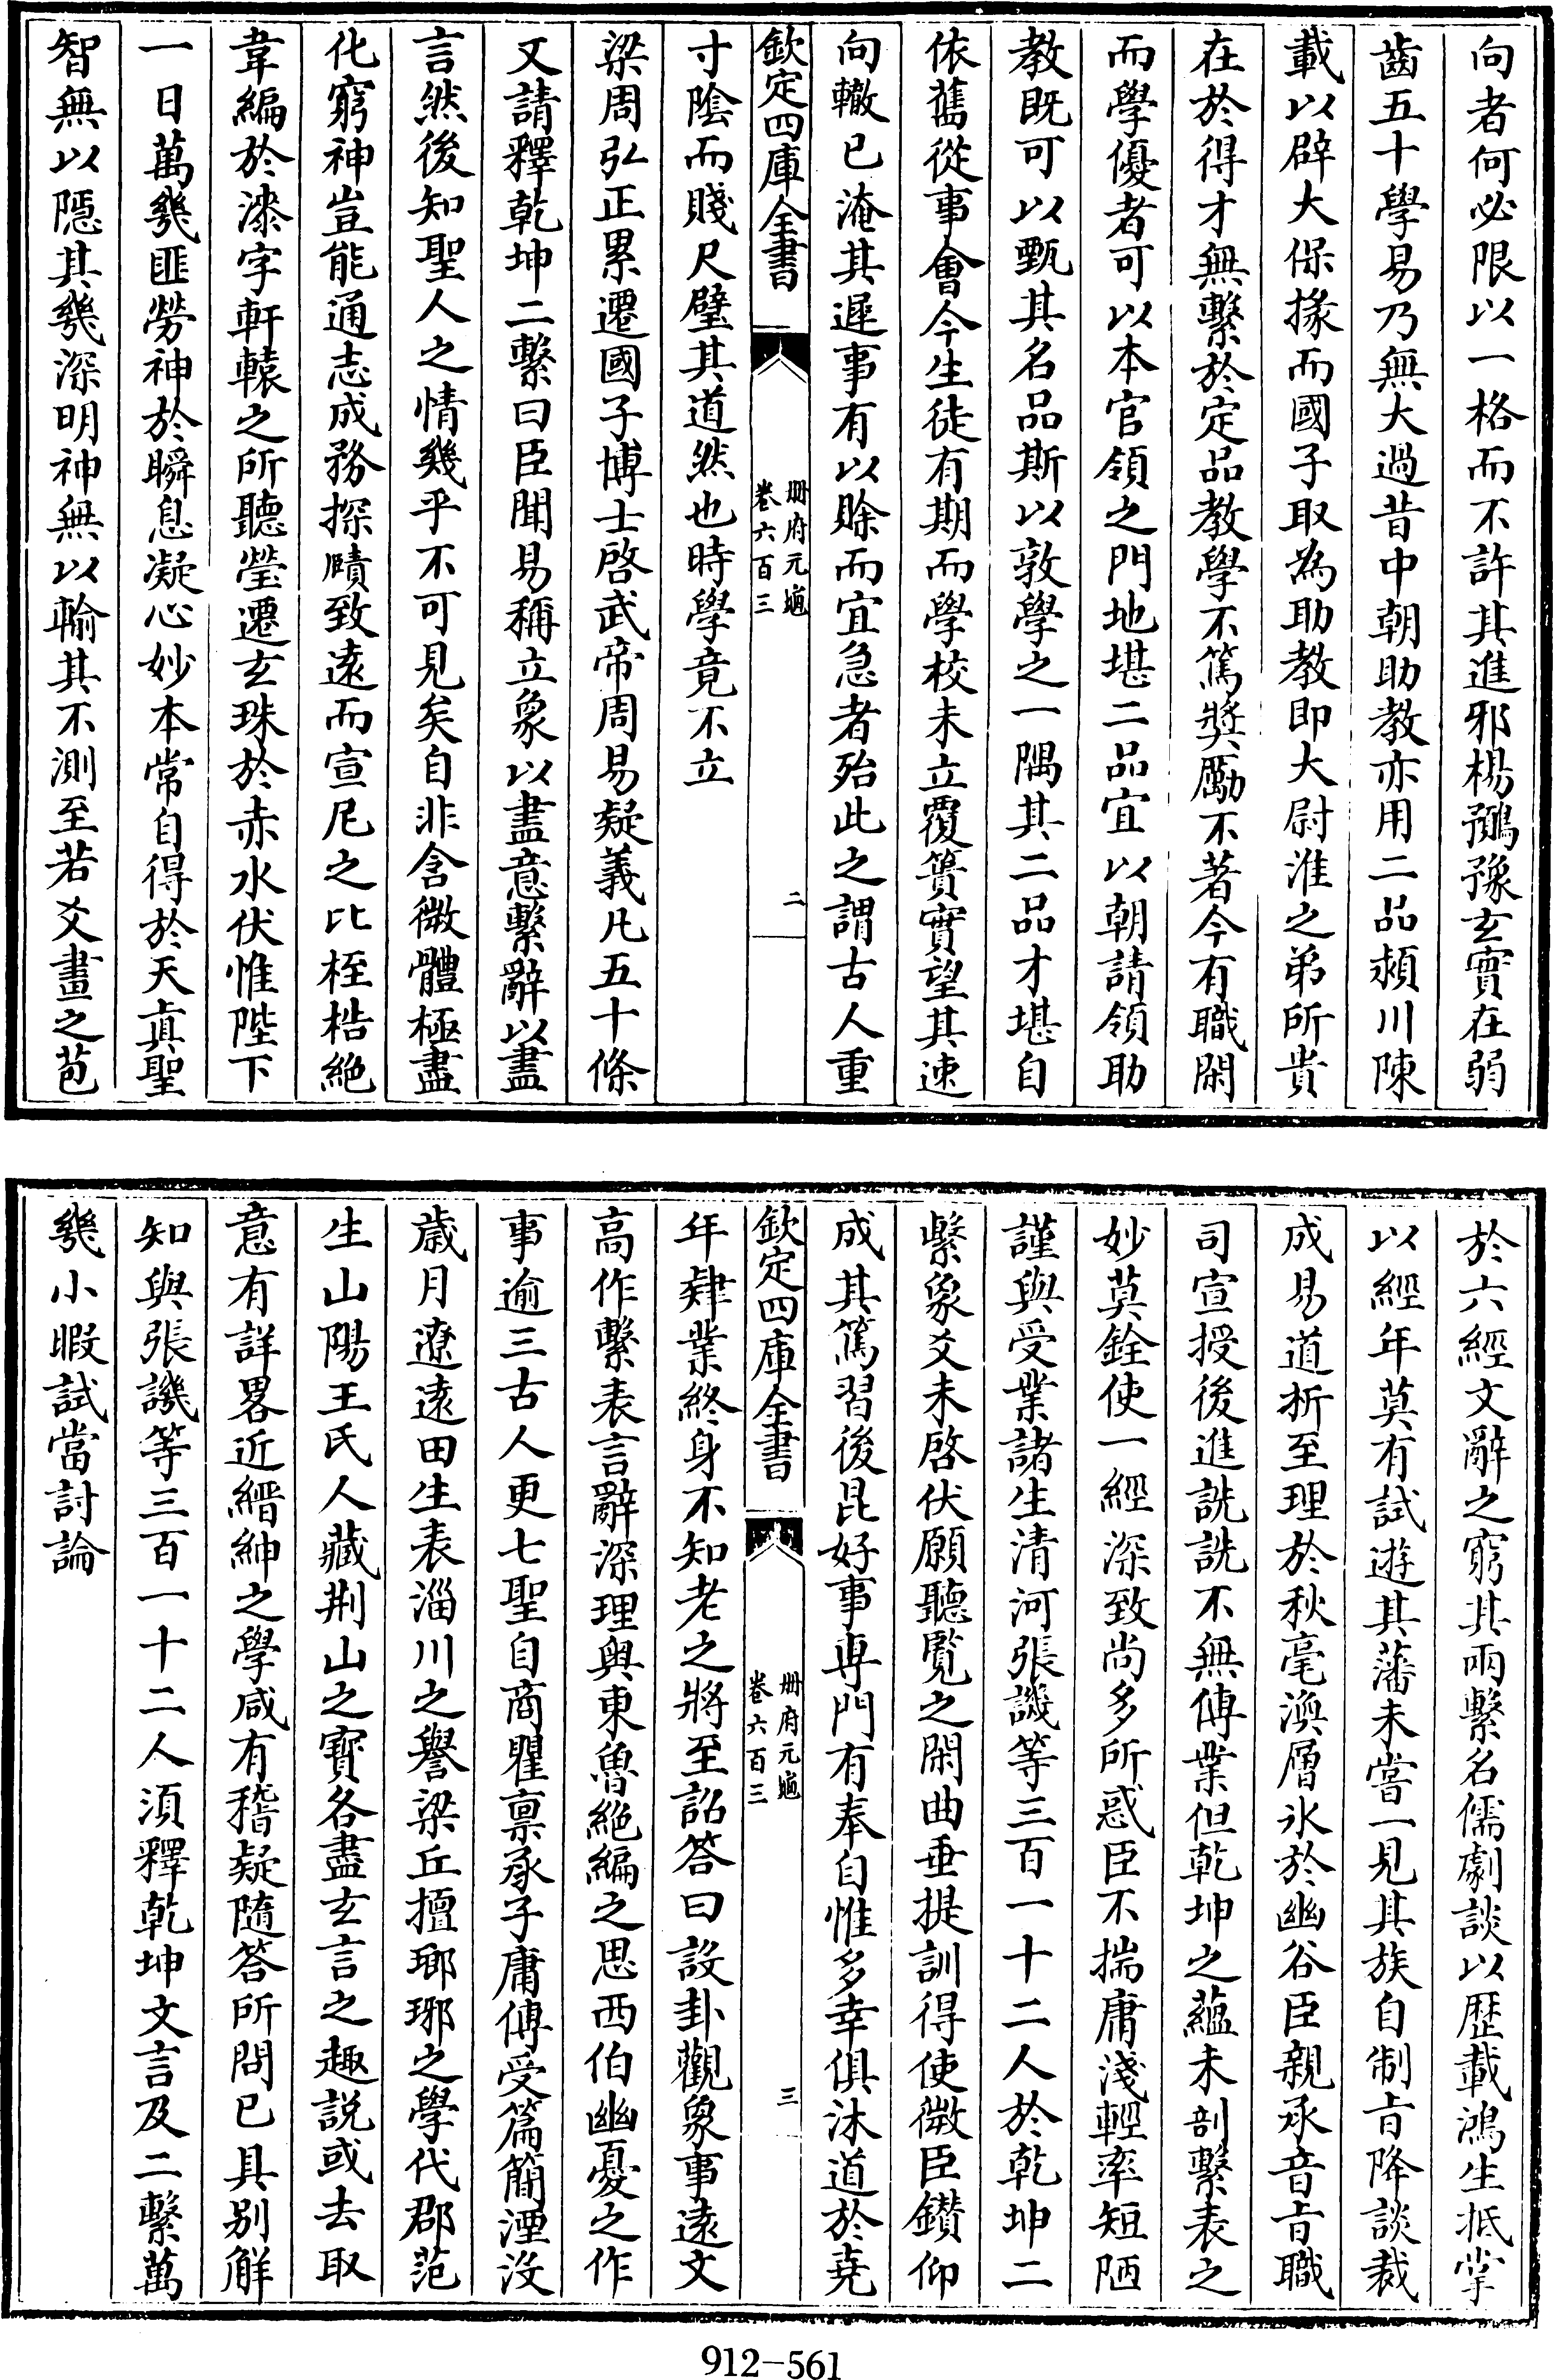 向者何必限以一格而不許其進邪楊鴞豫玄實在弱
齒五十學易乃無大過昔中朝助教亦用二品潁川陳
載以辟大保掾而國子取為助教即大尉淮之弟所貴
在於得才無繫於定品教學不篤奬勵不著今有職閑
而學優者可以本官領之門地堪二品宜以朝請領助
教既可以甄其名品斯以敦學之一隅其二品才堪自
依舊從事會今生徒有期而學校未立覆簣實望其速
向轍已淹其遲事有以賒而宜急者殆此之謂古人重
欽定四庫全書
册府元龜
卷六百三
二
寸陰而賤尺璧其道然也時學竟不立
梁周弘正累遷國子博士啓武帝周易疑義凡五十條
又請釋乾坤二繫曰臣聞易稱立象以盡意繫辭以盡
言然後知聖人之情幾乎不可見矣自非含微體極盡
化窮神豈能通志成務探賾致遠而宣尼之比桎梏絶
韋編於漆字軒轅之所聽瑩遷玄珠於赤水伏惟陛下
一日萬幾匪勞神於瞬息凝心妙本常自得於天真聖
智無以隱其幾深明神無以輸其不測至若爻畫之苞
於六經文辭之窮其兩繫名儒劇談以歴載鴻生抵掌
以經年莫有試遊其藩未嘗一見其族自制旨降談裁
成易道析至理於秋毫渙層氷於幽谷臣親承音旨職
司宣授後進詵詵不無傳業但乾坤之蘊未剖繫表之
妙莫銓使一經深致尚多所惑臣不揣庸淺輕率短陋
謹與受業諸生清河張譏等三百一十二人於乾坤二
繫象爻未啓伏願聽覧之閑曲垂提訓得使微臣鑚仰
成其篤習後昆好事專門有奉自惟多幸俱沐道於堯
欽定四庫全書
册府元龜
卷六百三
三
年肄業終身不知老之將至詔答曰設卦觀象事遠文
高作繫表言辭深理奥東魯絶編之思西伯幽憂之作
事逾三古人更七聖自商瞿禀承子庸傳受篇簡湮没
歲月遼遠田生表淄川之譽梁丘擅瑯琊之學代郡范
生山陽王氏人藏荆山之寶各盡玄言之趣説或去取
意有詳畧近縉紳之學咸有稽疑隨答所問已具别解
知與張譏等三百一十二人須釋乾坤文言及二繫萬
幾小暇試當討論
912-561